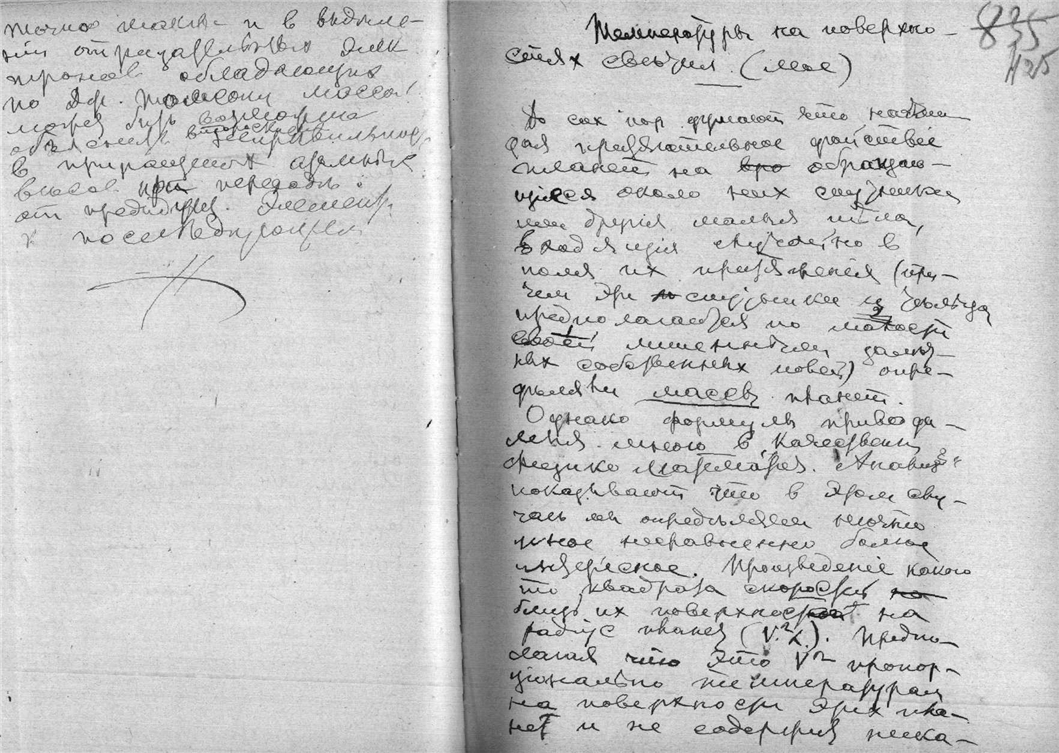 точно также и в выдѣле-
нiи отрицательных элек
тронов обладающих
по Дж. Томсону массой
может быть возможна
объяснить неправильность
в приращенiях атомных
весов при переходѣ
от предидущ. элемент.
к последующему
Температуры на поверхно-
стях светил. (мое)
835
До сих пор думают что наблю
дая притягательное дѣйствiе
планет на обращаю-
щiеся около них спутники
или другiя малыя тѣла,
входящiя случайно в
поля их притяженiя (при-
чем эти спутники
предполагается по малости
своей лишенными даль-
них собственных полей) опре-
дѣляем массы планет.
Однако формулы приводи
мыя мною в качествен
физико математ. Анализѣ
показывают что в этом слу-
чаѣ мы опредѣляем нечто
иное несравненно болѣе
интересное. Произведенiе какого
то квадрата скорости
близь их поверхностей на
радiус планет (V²R). Предпо-
лагая что это V² пропор-
цiонально температурам
на поверхности этих пла-
нет и не содержит ника-